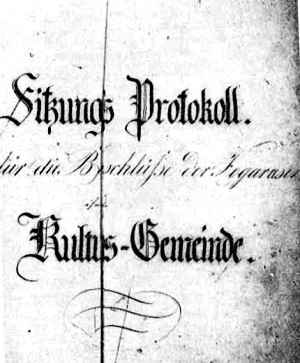 Sitzungs Protokoll.
für die Beschlüsse der Fogaraser
Kultus-Gemeinde.